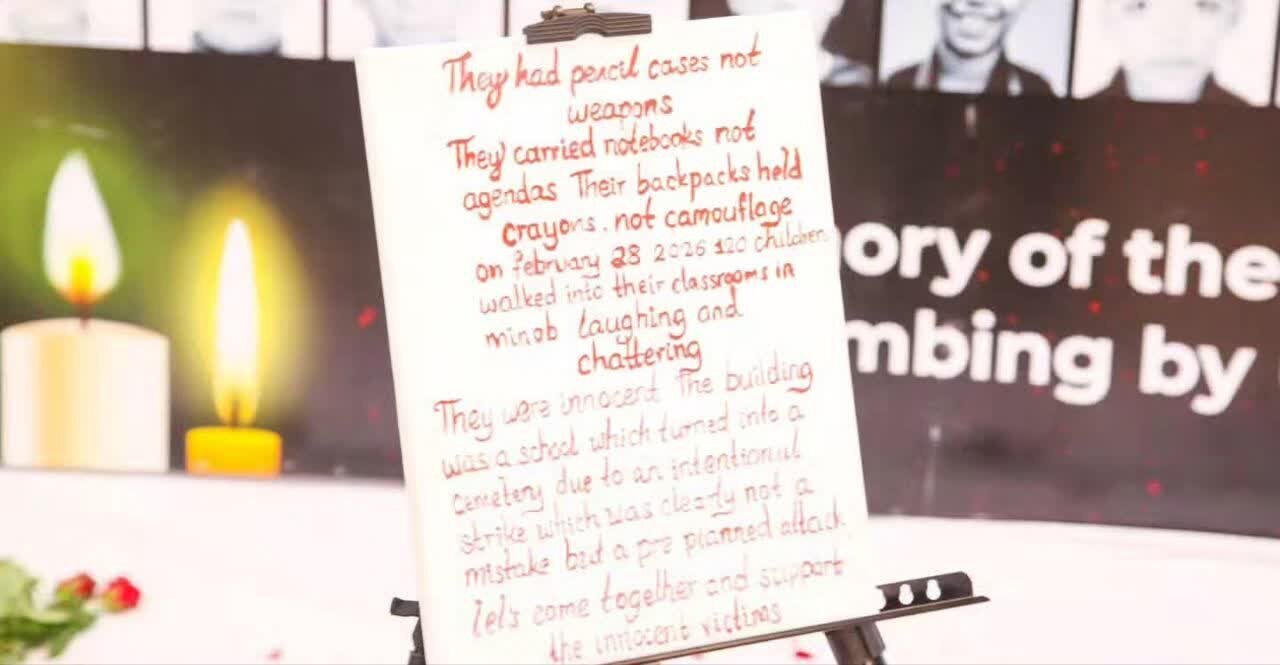 They had pencil cases not
weapons
They carried notebooks not
agendas Their backpacks held
crayons. not camouflage
on february 28 2026 120 children
walked into their classrooms in
minab laughing and
chattering
They were innocent The building
was a school which turned into a
cemetery due to an intentional
strike which was clearly not a
mistake but a pre planned attack
let's come together and support
the innocent victims
ory of the
mbing by